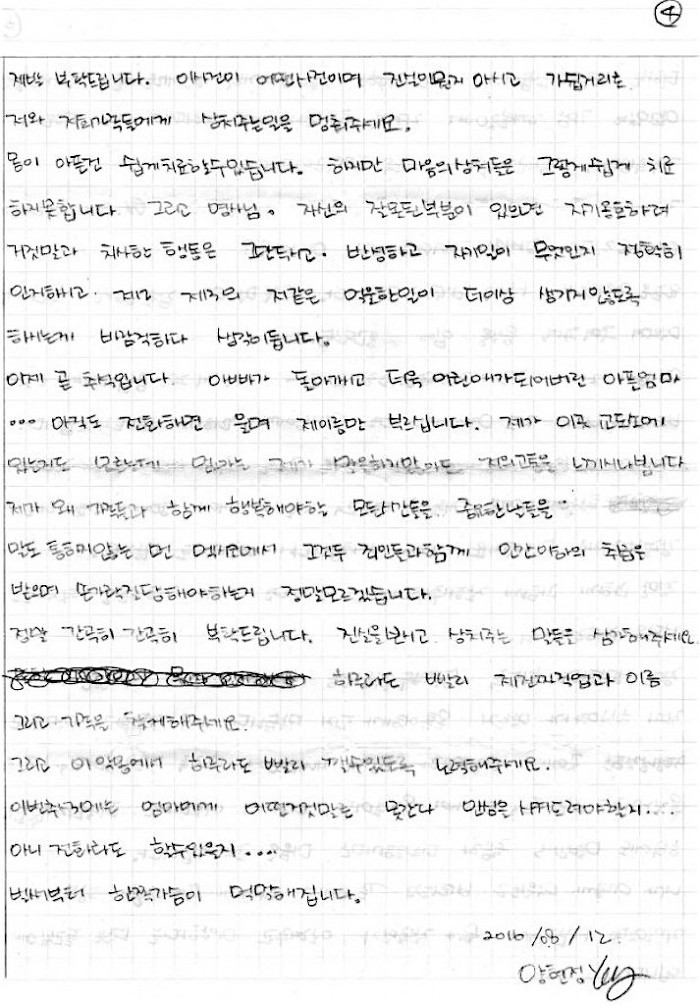 ④
제발 부탁드립니다. 이사건이 어떤사건이며 진실이뭔지 아시고 가십거리로
저와 저희가족들에게 상처주는일을 멈춰주세요.
몸이 아픈건 쉽게치료할수있습니다. 하지만 마음의상처들은 그렇게쉽게 치료
하지못합니다 그리고 영사님. 자신의 잘못된부분이 있으면 자기옹호하려
거짓말과 치사한 행동은 그만두시고. 반성하고 자기일이 무엇인지 정확히
인지하시고. 제2 제3의 저같은 억울한일이 더이상 생기지않도록
하시는게 바람직하다 생각이듭니다.
이제 곧 추석입니다. 아빠가 돌아가시고 더욱 어린애가되어버린 아픈엄마
... 아직도 전화하면 울며 제이름만 부르십니다. 제가 이곳 교도소에
있는지도 모르는데 엄마는 제가 말을하지않아도 저의고통을 느끼시나봅니다
제가 왜 가족들과 함께 행복해야할 모든시간들을
말도 통하지않는 먼 멕시코에서 그것두 죄인들과함께 인간이하의 취급을
받으며 손가락질당해야하는지 정말모르겠습니다.
정말 간곡히 간곡히 부탁드립니다. 진실을보시고 상처주는 말들을 삼가해주세요
하루라도 빨리 제전까지직업과 이름
그리고 가족을 찾게해주세요.
그리고 이악몽에서 하루라도 빨리 깰수있도록 노력해주세요.
이번추석에는 엄마에게 어떤거짓말로 못간다 안심을 시켜드려야할지...
아니 전화라도 할수있을지....
벌써부터 한쪽가슴이 먹먹해집니다.
2016 / 08 / 12.
양현정